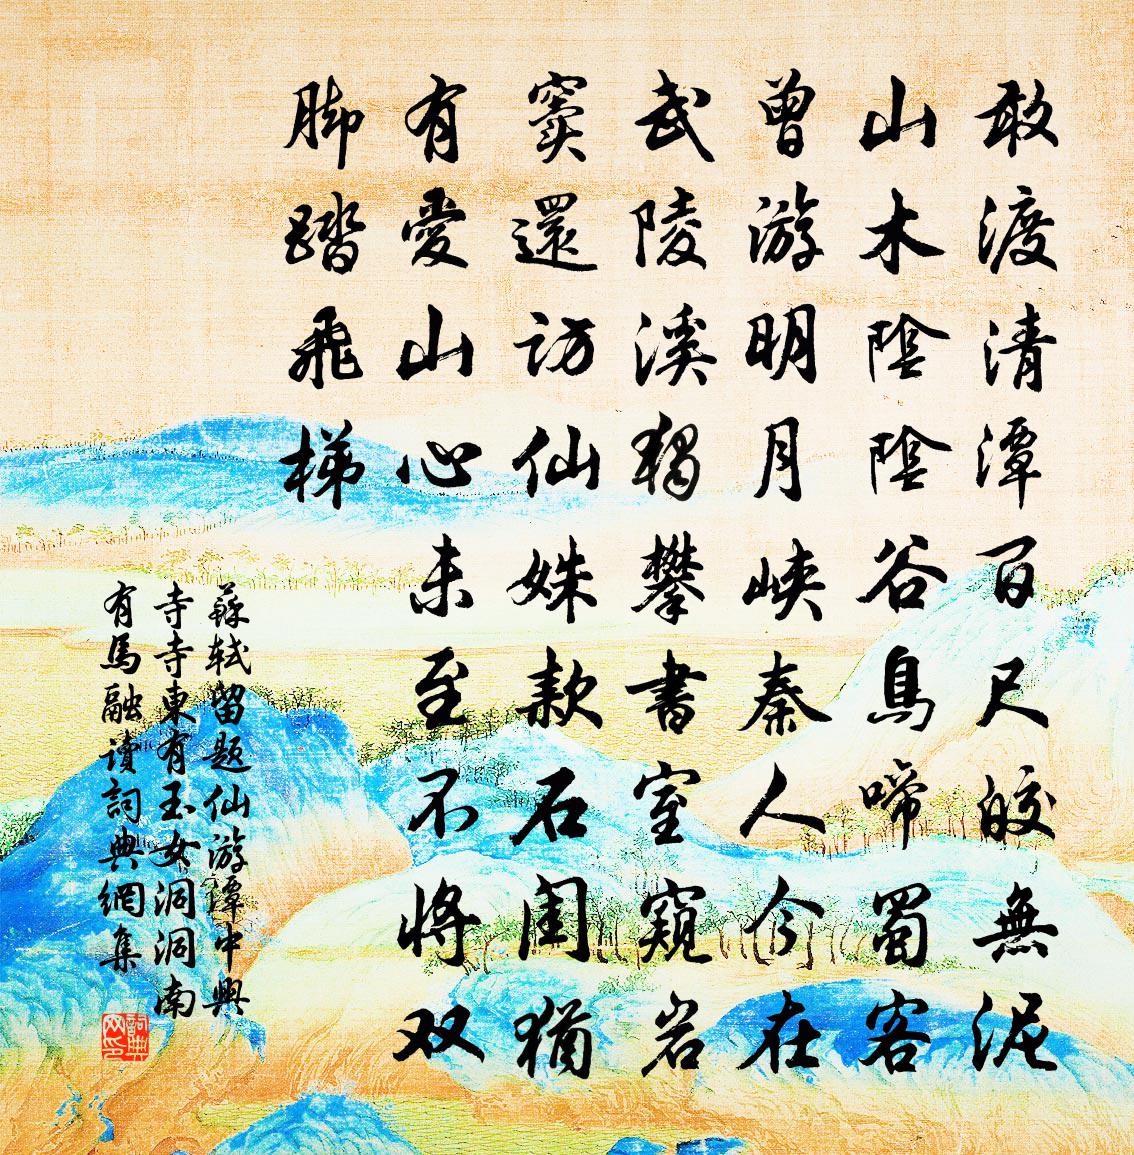 敢渡清潭百尺皎無泥
山木陰陰谷鳥啼蜀客
曾游明月峽秦人今在
武陵溪獨攀書室窺岩
竇還訪仙姝款石閨猶
有愛山心未至不將双
脚踏飛梯
蘇軾留題仙游潭中興
寺寺東有玉女洞洞南
有馬融讀詞典網集
詞典
网印